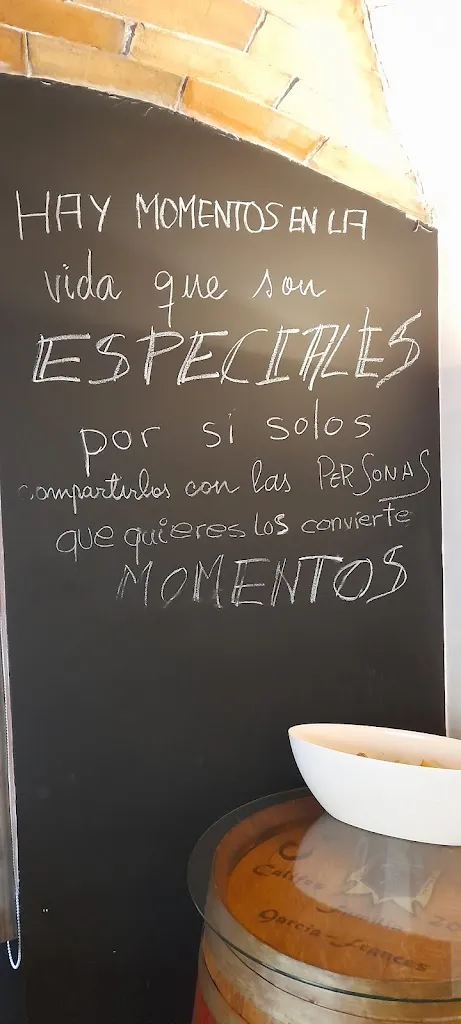 HAY MOMENTOS EN LA
vida que son
ESPECIALES
por si solos
compartirlos con las PERSONAS
que quieres los convierte
MOMENTOS
Garcia-Frances